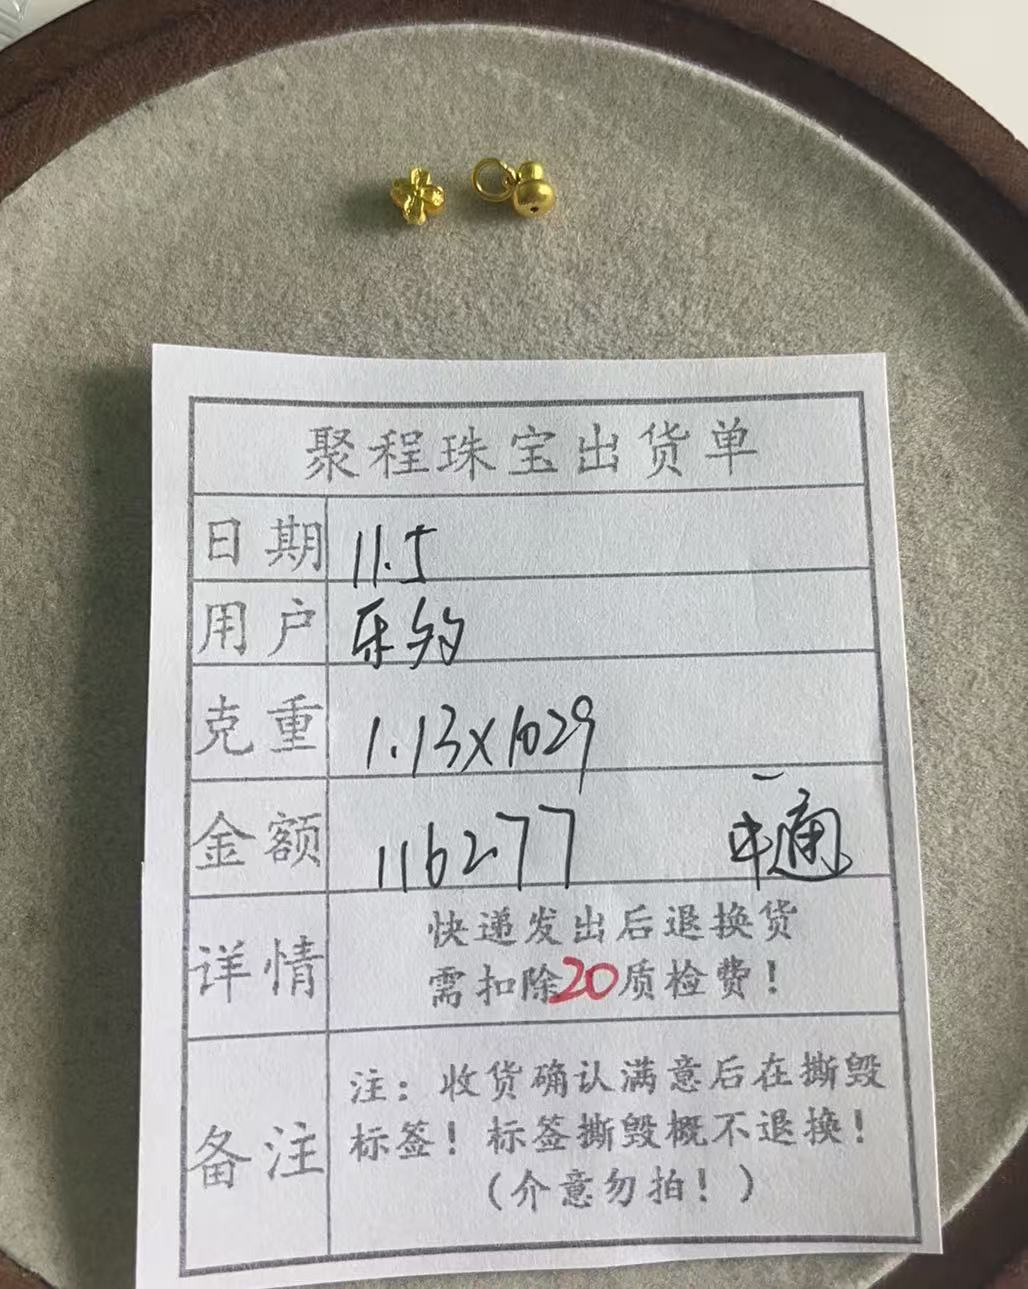 聚程珠宝出货单
日期 11.5
用户 乐多多
克重 1.13×1029
金额 116277 中通
详情 快递发出后退换货
需扣除20质检费！
备注 注：收货确认满意后在撕毁
标签！标签撕毁概不退换！
（介意勿拍！）